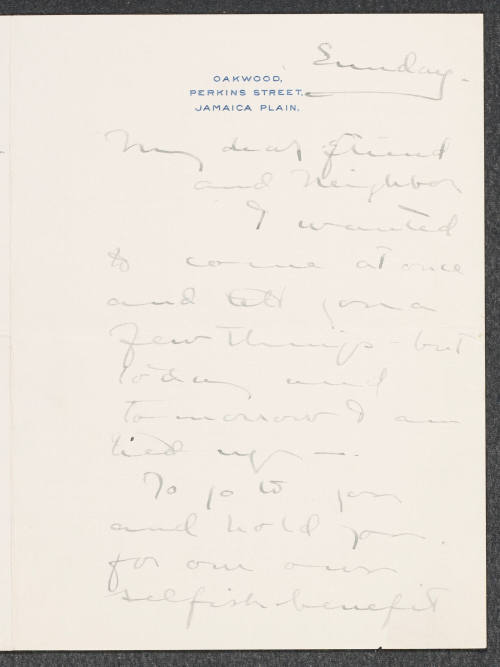 Sunday.
OAKWOOD,
PERKINS STREET,
JAMAICA PLAIN.
My dear friend
and Neighbor
I wanted
to come at once
and tell you a
few things - but
today and
tomorrow I am
tied up —.
To go to you
and hold you
for our own
selfish benefit